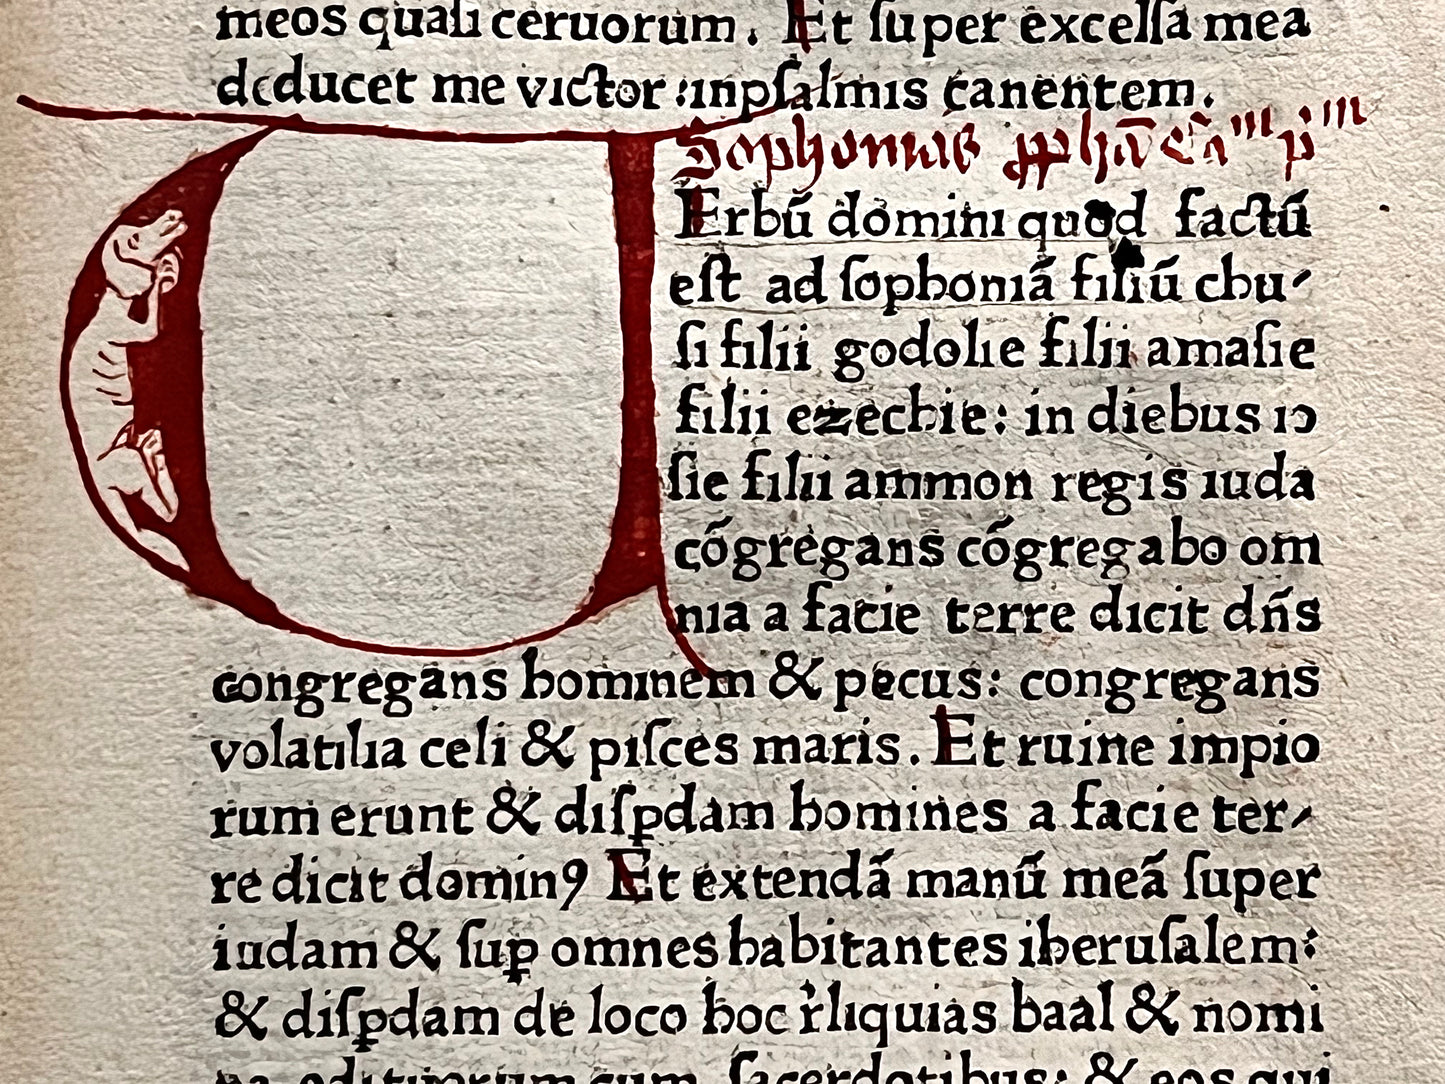 meos quasi ceruorum. Et ſuper excelſa mea
deducet me victor inpſalmis canentem.
Sophonias ꝓph̄a Cā^m p^m
VErbū domini quod factū
eſt ad ſophoniā filiū chu-
ſi filii godolie filii amaſie
filii ezechie: in diebus io
ſie filii ammon regis iuda
cōgregans cōgregabo om
nia a facie terre dicit dn̄s
congregans hominem & pecus: congregans
volatilia celi & piſces maris. Et ruine impio
rum erunt & diſꝑdam homines a facie ter-
re dicit dominꝰ Et extendā manū meā ſuper
iudam & ſuꝑ omnes habitantes iheruſalem:
& diſꝑdam de loco hoc r̓liquias baal & nomi
na edituorum cum ſacerdotibus: & eos qui